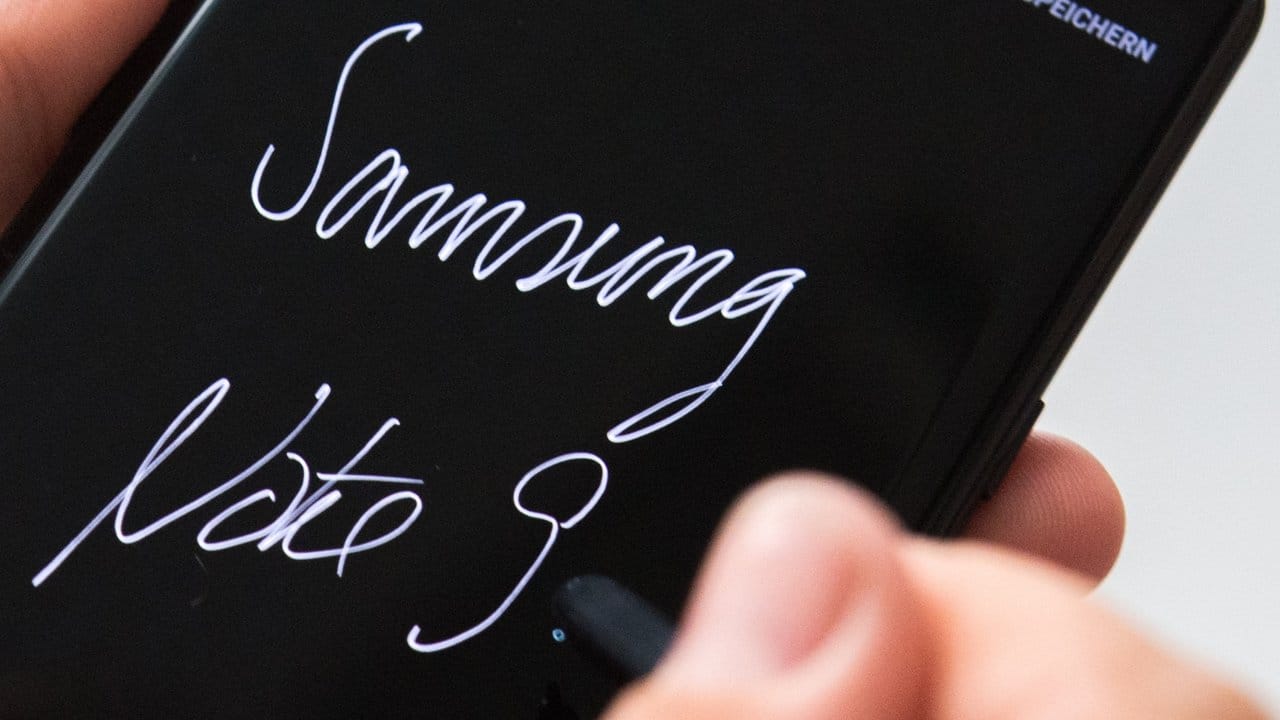 SPEICHERN
Samsung
Note 9